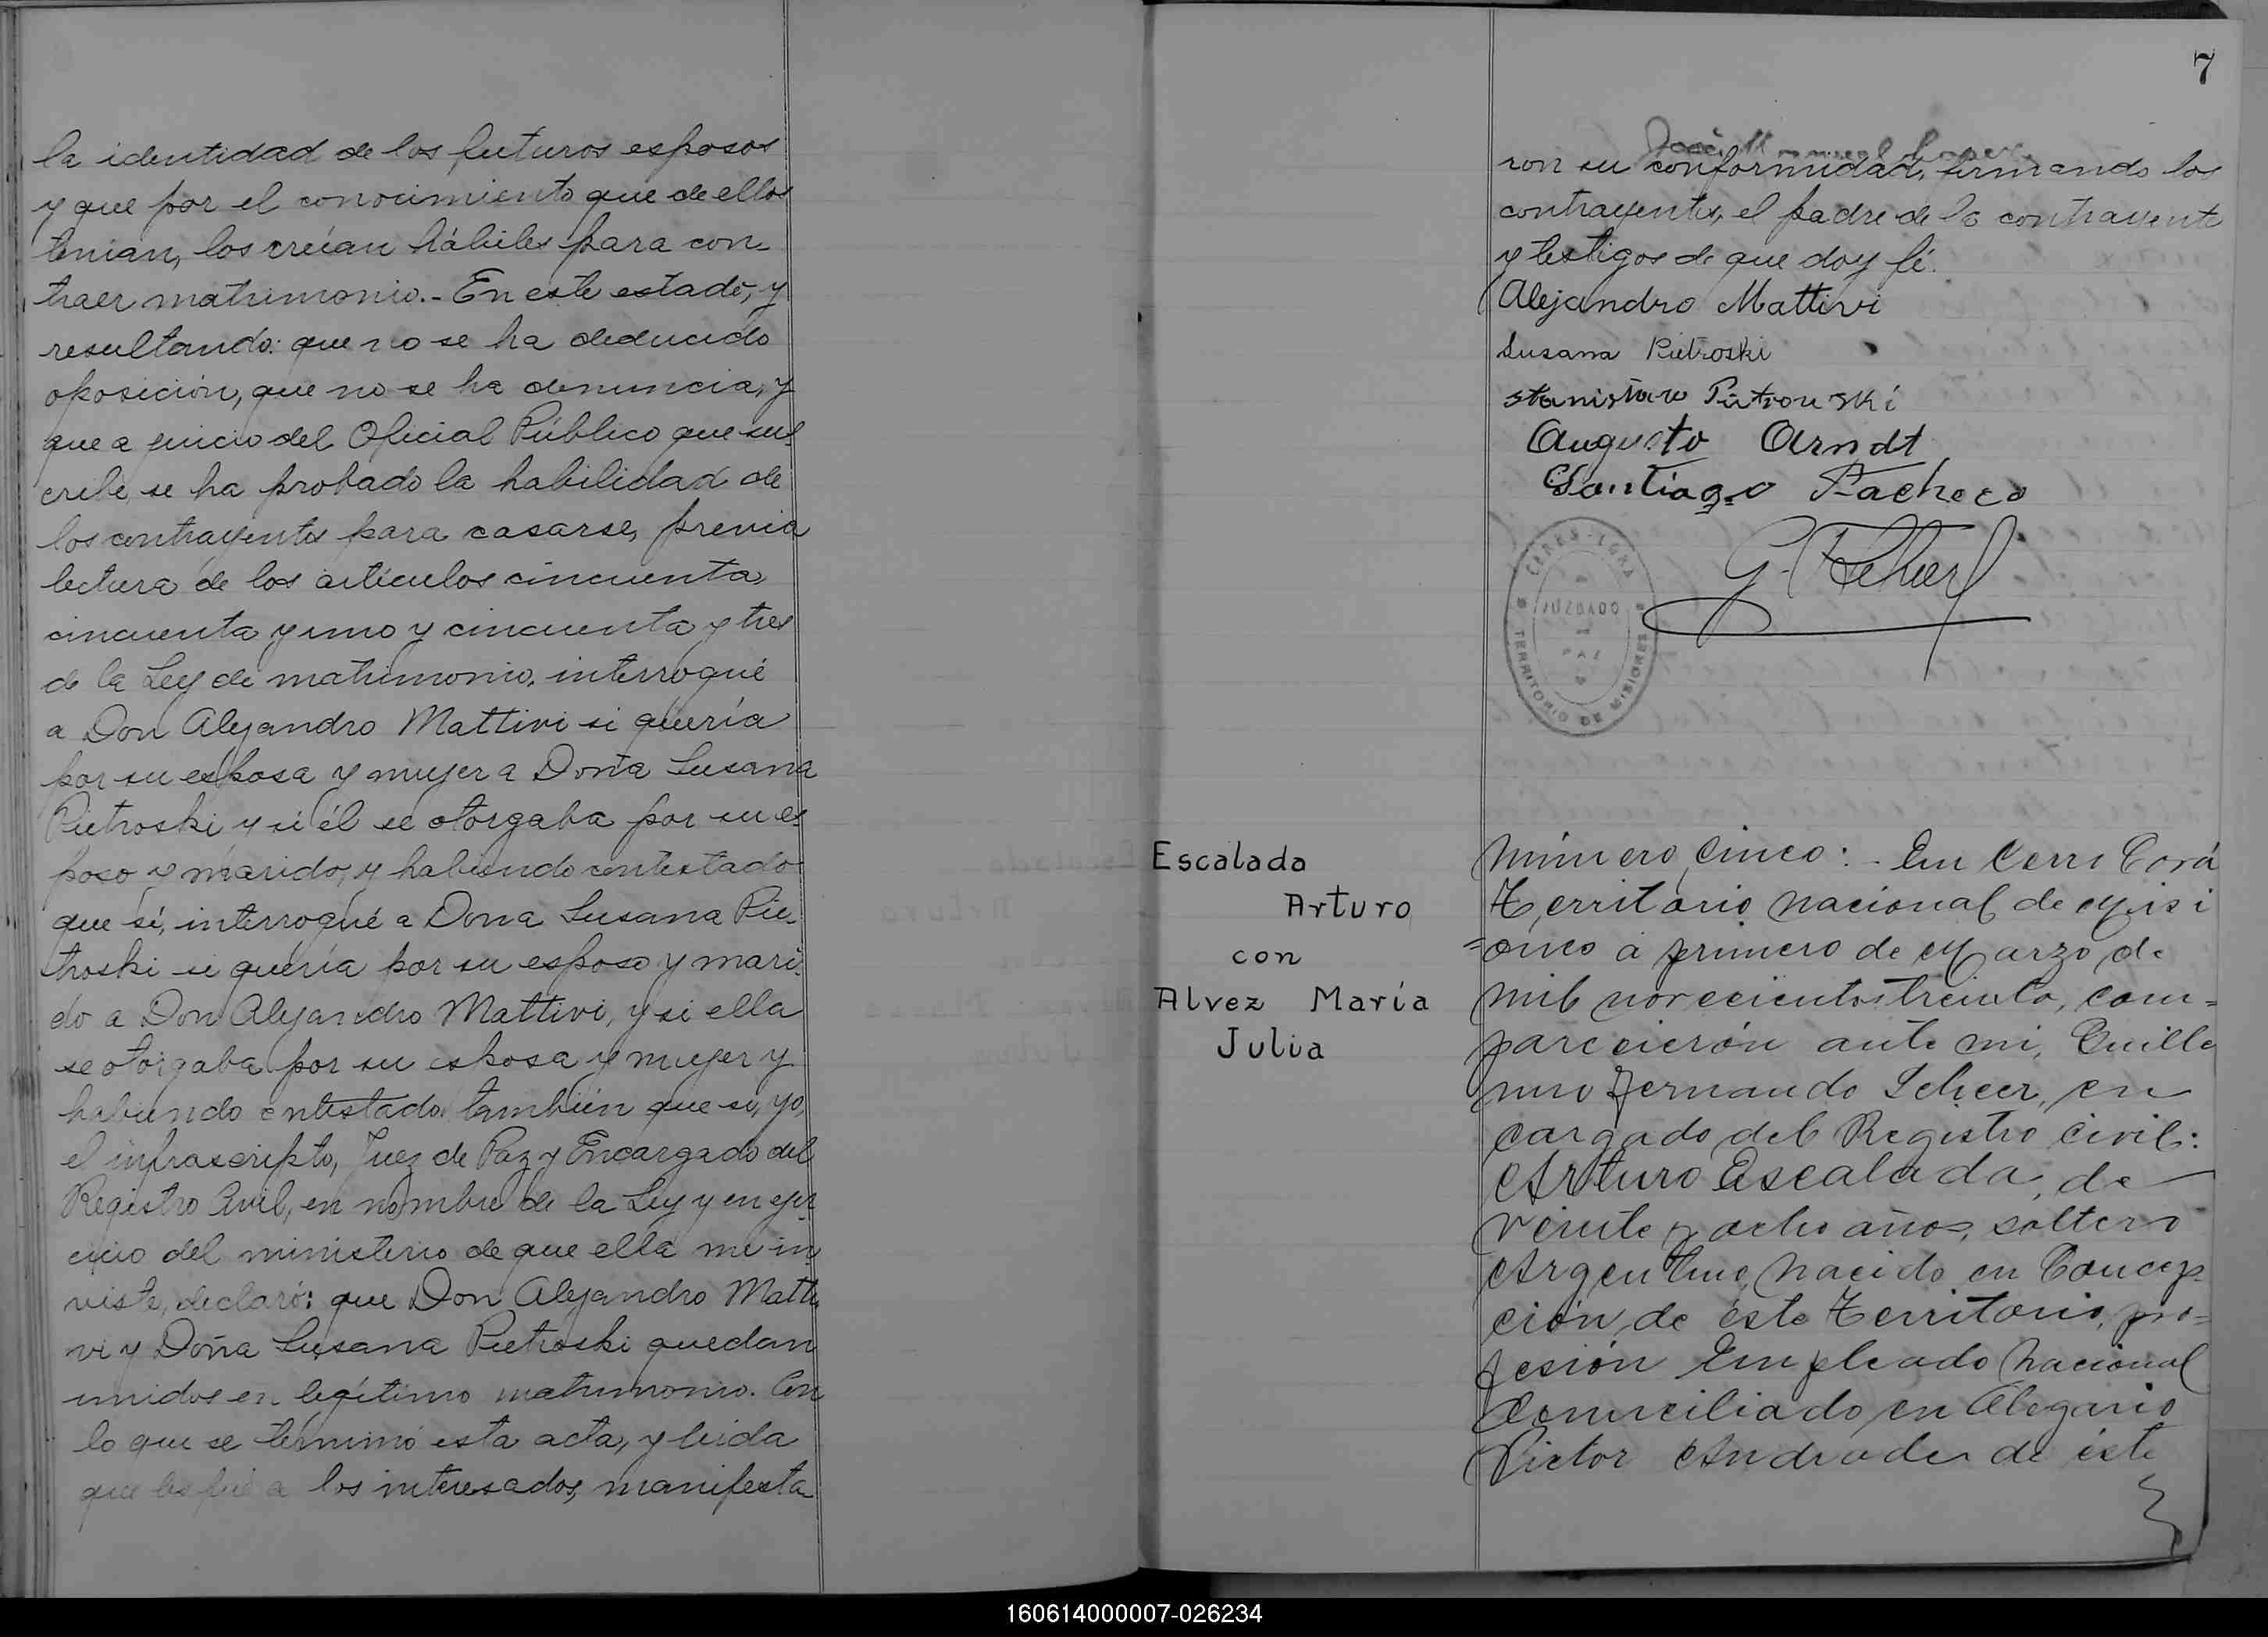 la identidad de los futuros esposos
y que por el conocimiento que de ellos
tenian, los creían hábiles para con
traer matrimonio.- En este estado, y
resultando: que no se ha deducido
oposición, que no se ha denuncia, y
que a juicio del Oficial Público que sus
cribe, se ha probado la habilidad de
los contrayentes para casarse, previa
lectura de los artículos cincuenta,
cincuenta y uno y cincuenta y tres
de la Ley de matrimonio, interrogué
a Don Alejandro Mattivi si quería
por su esposa y mujer a Doña Susana
Pietroski y si él se otorgaba por su es
poso y marido, y habiendo contestado
que sí, interrogué a Dona Susana Pie-
troski si quería por su esposo y mari-
do a Don Alejandro Mattivi, y si ella
se otorgaba por su esposa y mujer y
habiendo contestado también que si, yo,
el infrascripto, Juez de Paz y Encargado del
Registro Civil, en nombre de la Ley y en ejer
cicio del ministerio de que ella me in
viste, declaró: que Don Alejandro Matti
vi y Doña Susana Pietroski quedan
unidos en legítimo matrimonio. Con
lo que se términó esta acta, y leida
que les fué a los interesados, manifesta
7
José Manuel Lopez
ron su conformidad, firmando los
contrayentes, el padre de la contrayente
y testigos de que doy fé.
Alejandro Mattivi
Susana Pietroski
Stanislaw Pietrowski
Augusto Arndt
Santiago Pacheco
G. F. Scheer
CERRO-CORA
JUZGADO
DE
PAZ
TERRITORIO DE MISIONES
Escalada
Arturo
con
Alvez María
Julia
Número Cinco:- En Cerro Corá
Territorio nacional de Misi
=ones a primero de Marzo de
mil novecientos treinta, com=
parecierón ante mi, Guille
rmo Fernando Scheer, en
cargado del Registro Civil:
Arturo Escalada, de
veinte y ocho años, soltero
Argentino, nacido en Concep
ción, de éste Territorio, pro=
fesión Empleado nacional
Domiciliado en Olegario
Victor Andrades de éste